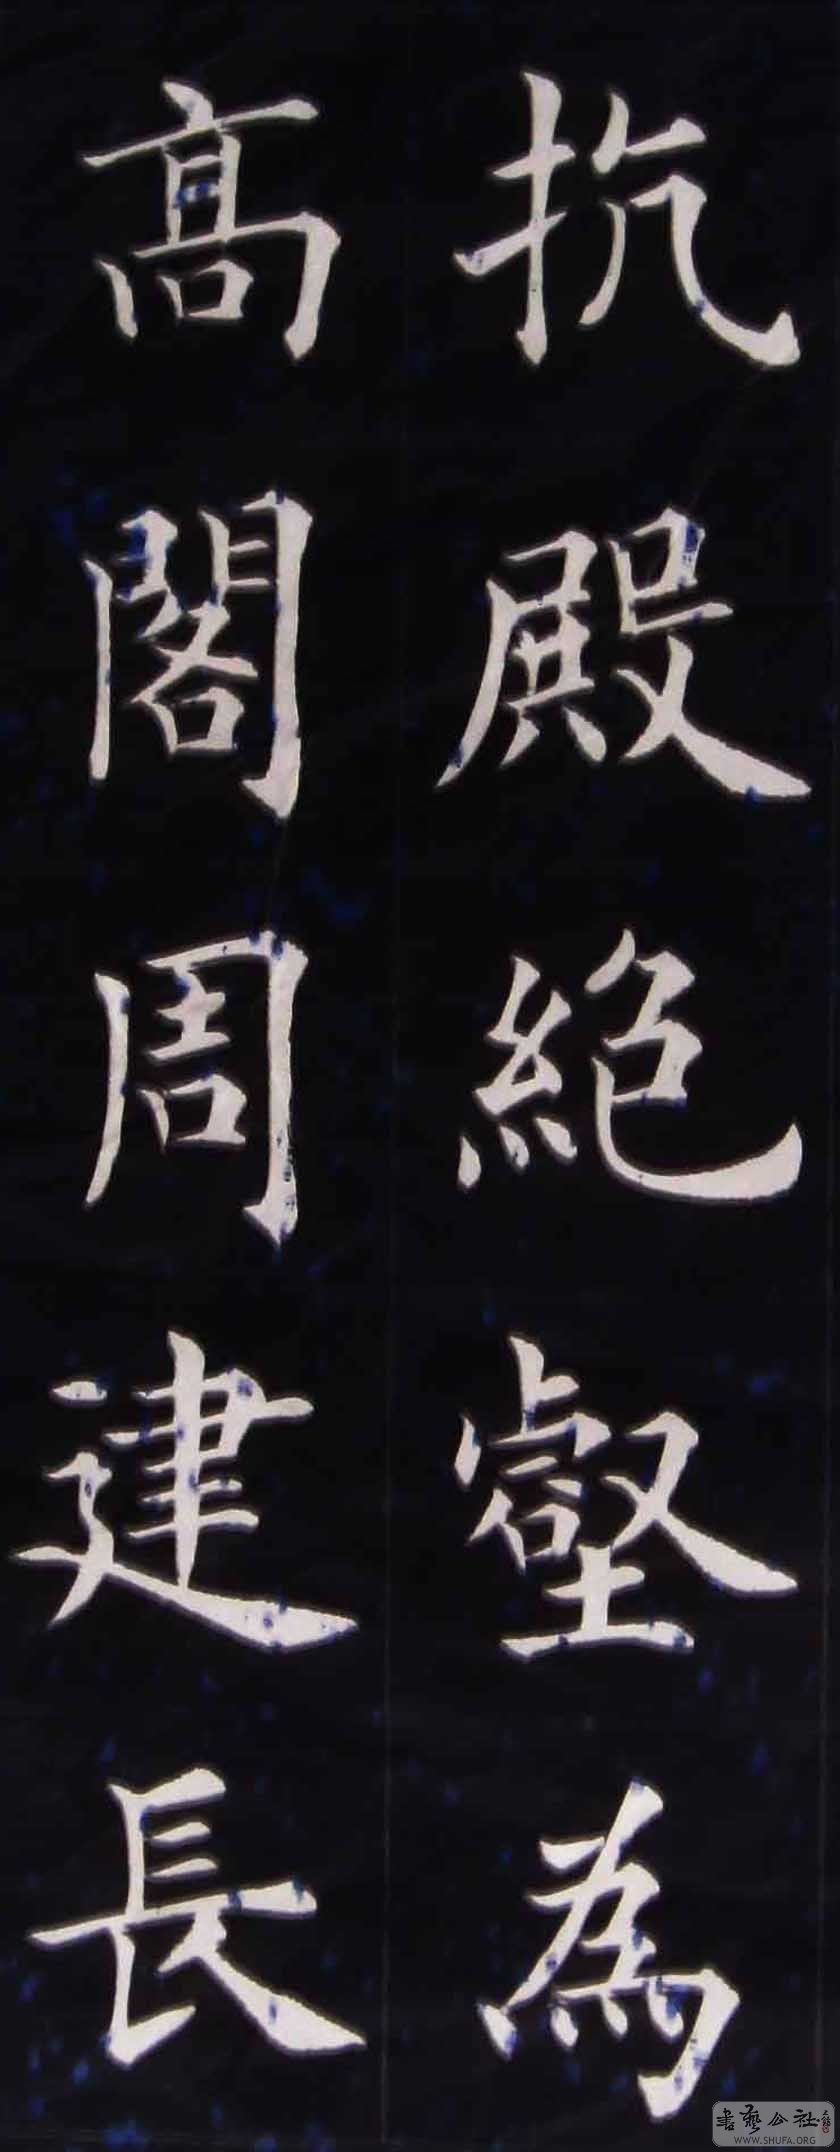 抗殿絕壑為
高閣周建長
書藝公社
WWW.SHUFA.ORG